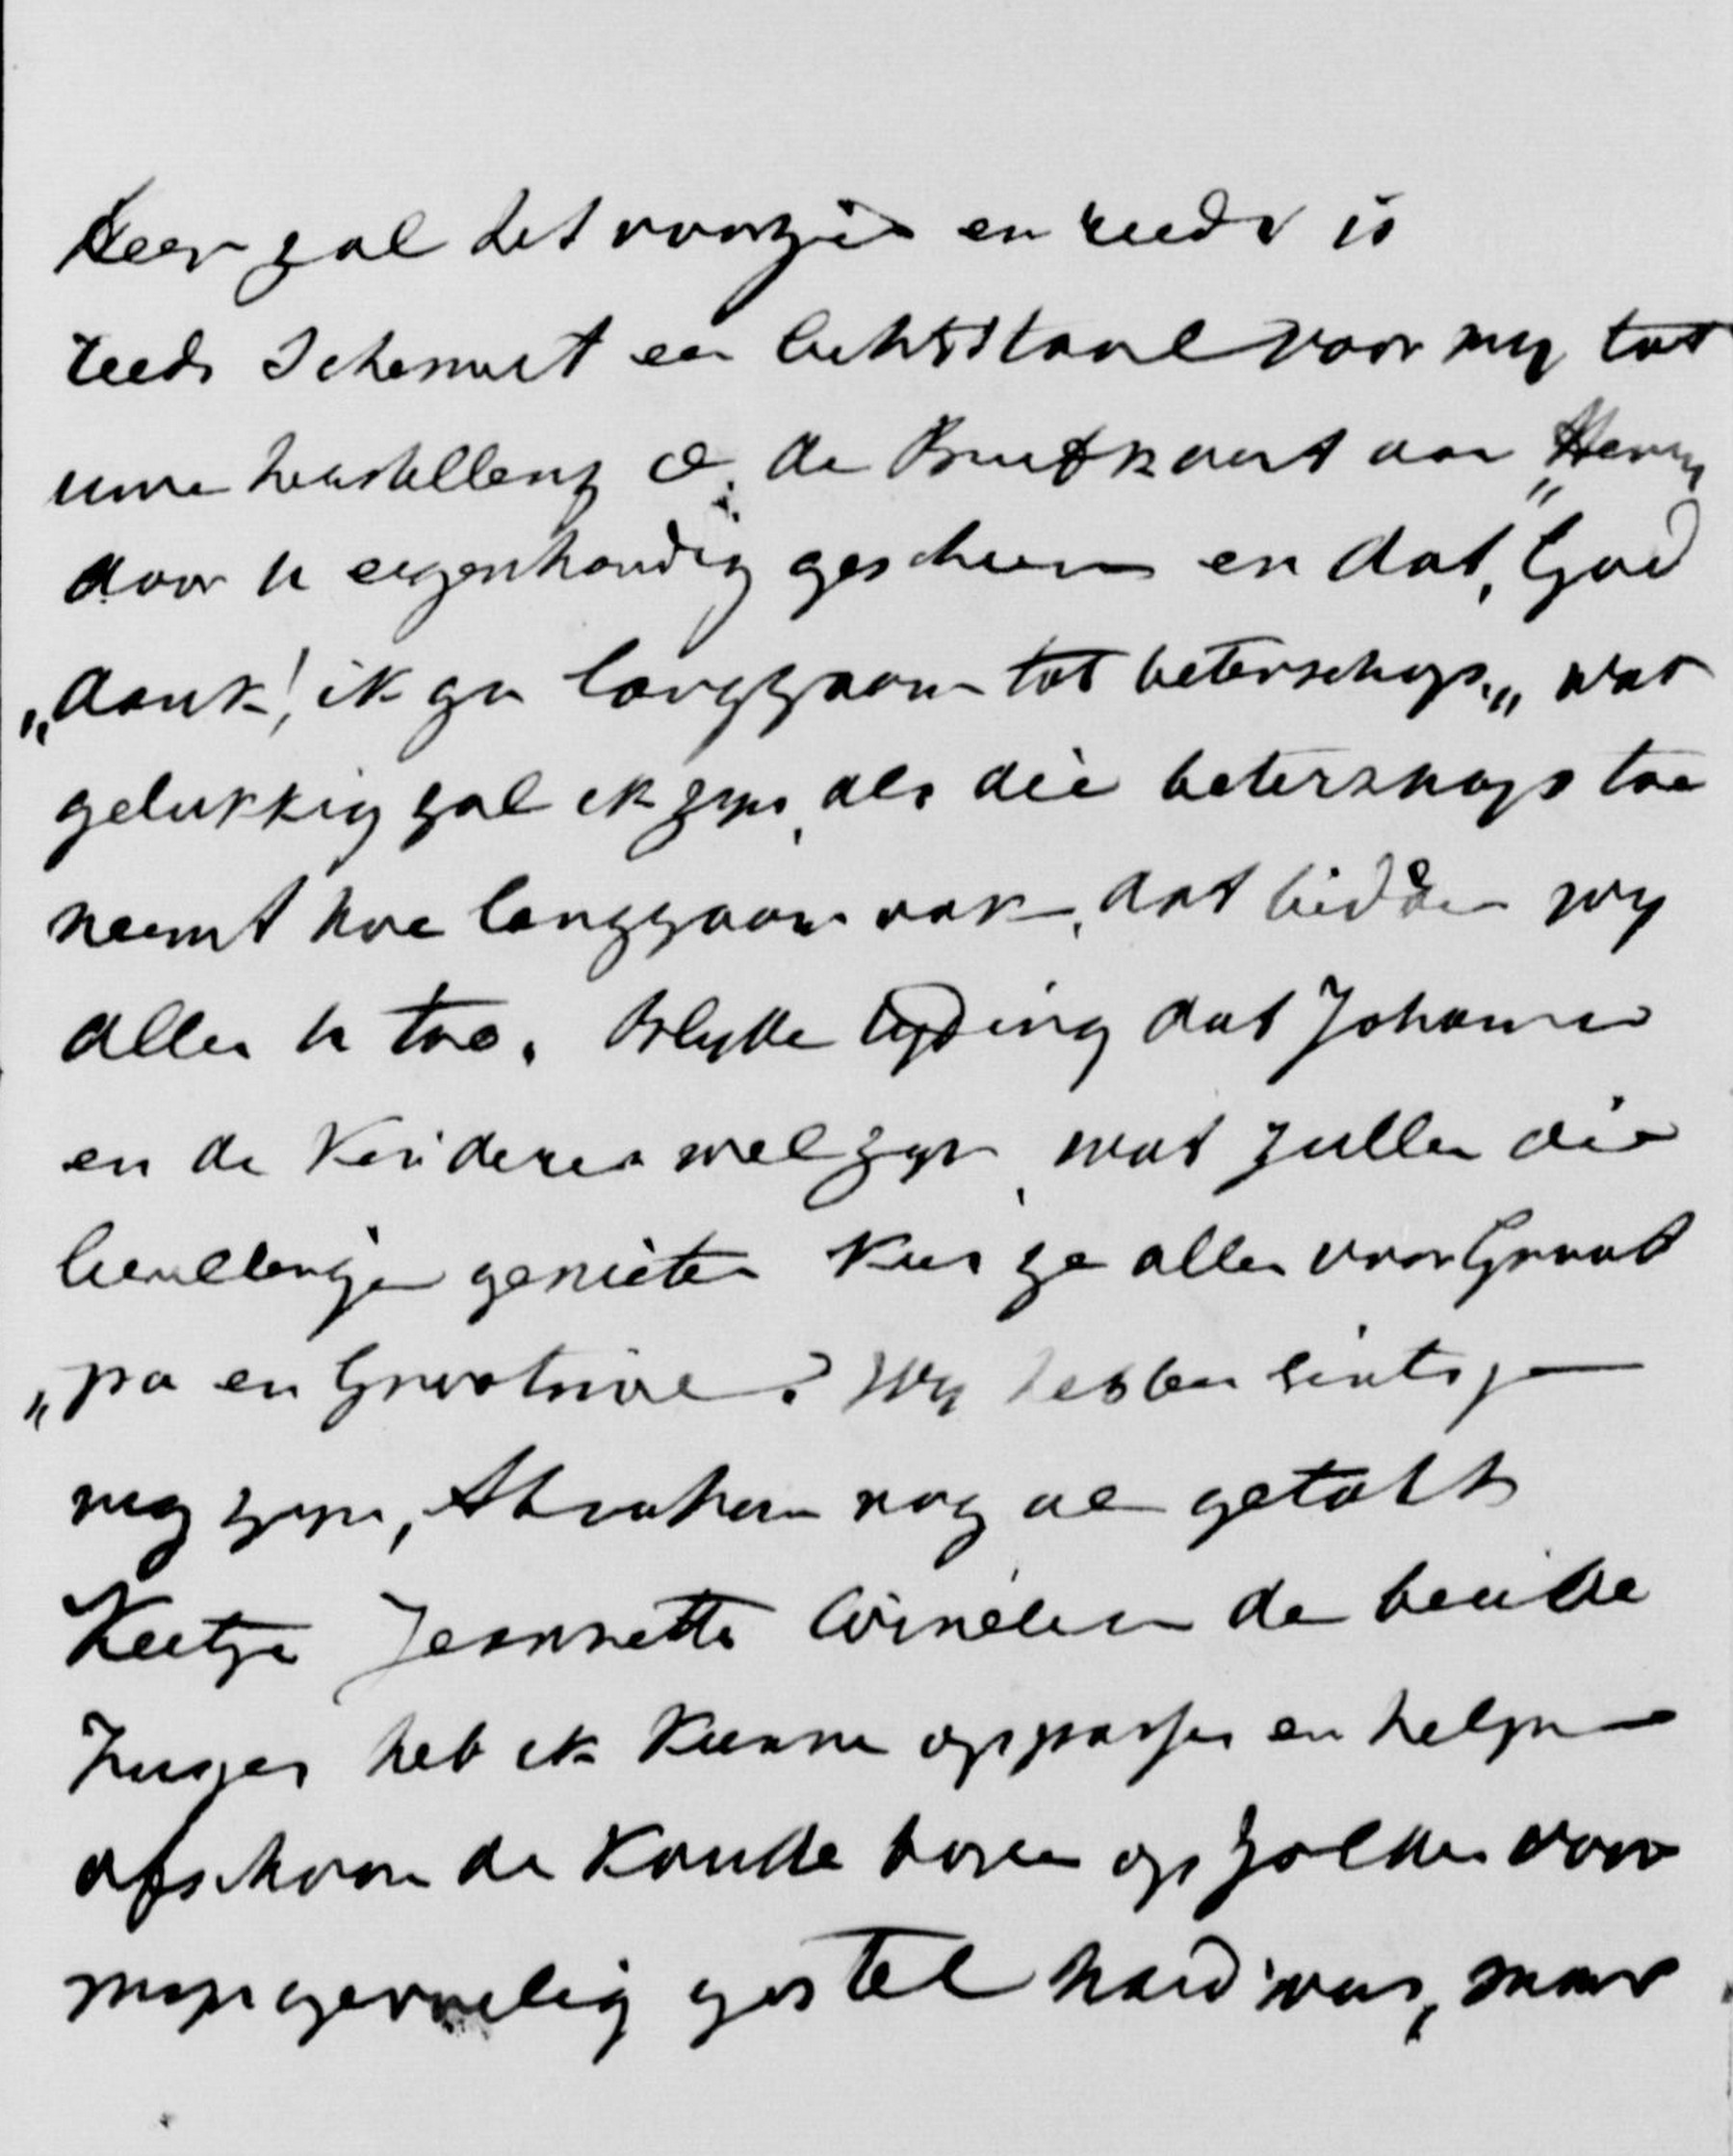 Heer zal het voorzien en reeds is
reeds Schemert een lichtstraal voor my tot
uwe herstelling de Briefkaart aan Henry
door u eigenhandig geschreven en dat, God
„dank! ik ga langzaam tot beterschap„ wat
gelukkig zal ik zyn, als die beterschap toe
neemt hoe langzaam ook, dat bidden wy
allen u toe. Blyde tyding dat Johanna
en de Kinderen wel zyn, wat zullen die
lievelingen genieten Kus ze allen voor Groot
„pa en Grootmoe? Wy hebben sints
nog zyn, Abraham nog al getobt
Keetje Jeannette Cornelia de beide
Zusjes heb ik Kunnen oppassen en helpen
ofschoon de Koude boven op Zolder voor
myn gevoelig gestel hard was, maar